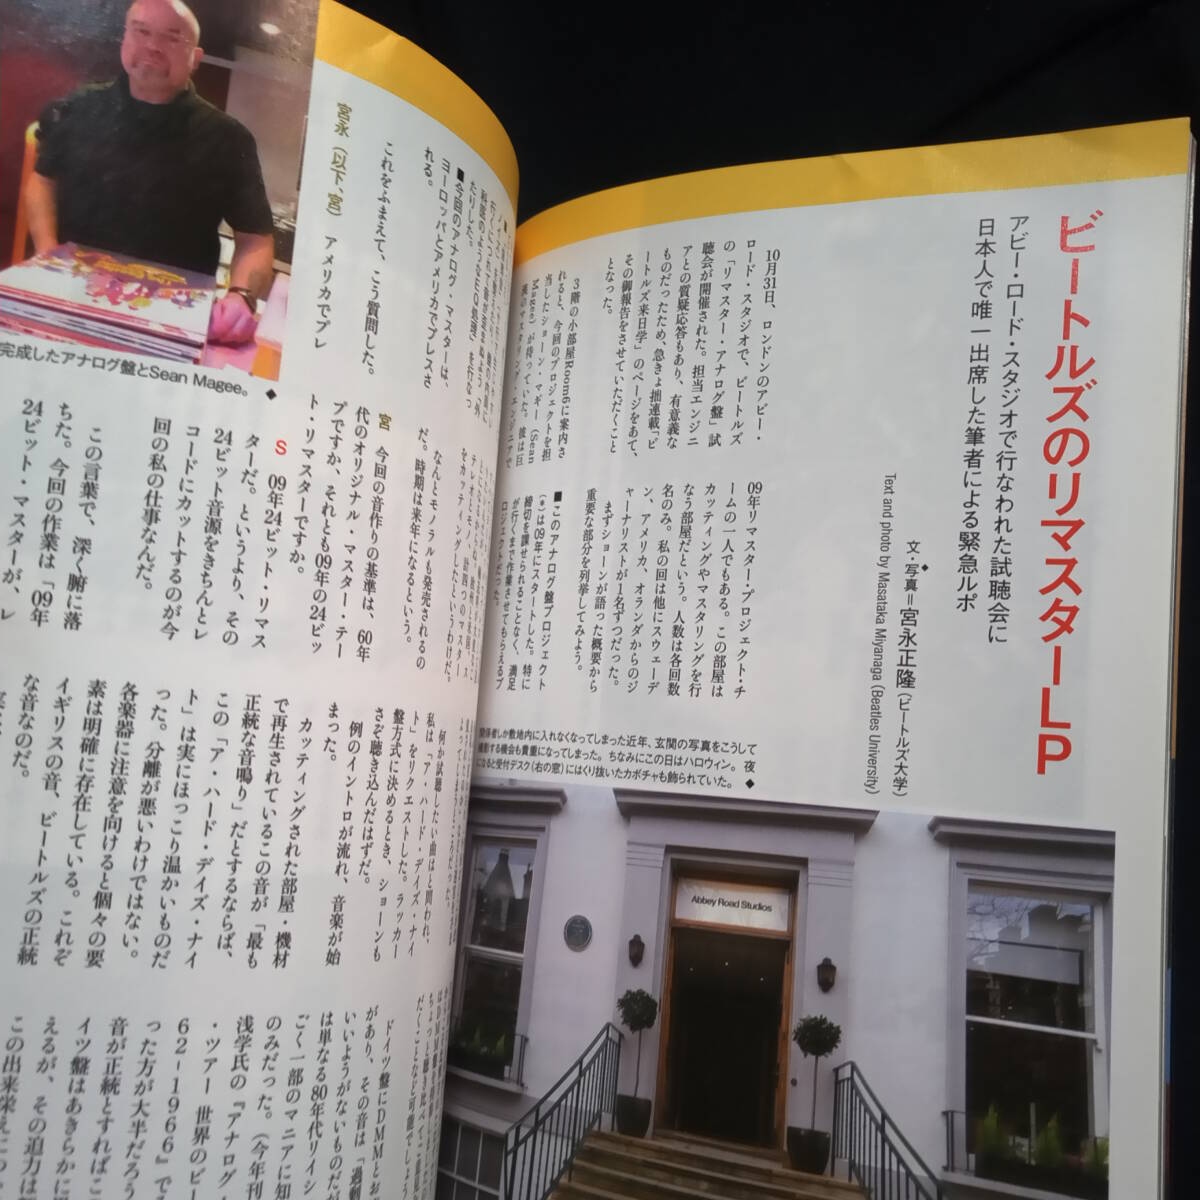 ビートルズのリマスターLP
アビー・ロード・スタジオで行なわれた試聴会に
日本人で唯一出席した筆者による緊急ルポ
文・写真＝宮永正隆（ビートルズ大学）
Text and photo by Masataka Miyanaga (Beatles University)
10月31日、ロンドンのアビー・
ロード・スタジオで、ビートルズ
の「リマスター・アナログ盤」試
聴会が開催された。担当エンジニ
アとの質疑応答もあり、有意義な
ものだったため、急きょ拙連載「ビ
ートルズ来日学」のページをあて、
その御報告をさせていただくこと
となった。
3階の小部屋Room6に案内さ
れると、今回のプロジェクトを担
当したショーン・マギー（Sean
Magee）が待っていた。彼は巨
漢のマスタリング・エンジニアで
09年リマスター・プロジェクト・チ
ームの一人でもある。この部屋は
カッティングやマスタリングを行
なう部屋だという。人数は各回数
名のみ。私の回は他にスウェーデ
ン、アメリカ、オランダからのジ
ャーナリストが1名ずつだった。
まずショーンが語った概要から
重要な部分を列挙してみよう。
■このアナログ盤プロジェクト
は09年にスタートした。特に
締切を課せられることなく、満足
が行くまで作業させてもらえるプ
ロジェクトだった。
関係者しか敷地内に入れなくなってしまった近年、玄関の写真をこうして
撮影する機会も貴重になってしまった。ちなみにこの日はハロウィン。夜
になると受付デスク（右の窓）にはくり抜いたカボチャも飾られていた。◆
Abbey Road Studios
完成したアナログ盤とSean Magee。◆
科医のようなEQ処理」を行なっ
たりした。
■今回のアナログ・マスターは、
ヨーロッパとアメリカでプレスさ
れる。
これをふまえて、こう質問した。
宮永（以下、宮） アメリカでプレ
をカッティングしたというわけだ。
なんとモノラルも発売されるの
だ。時期は来年になるという。
宮 今回の音作りの基準は、60年
代のオリジナル・マスター・テー
プですか、それとも09年の24ビッ
ト・リマスターですか。
S 09年24ビット・リマス
ターだ。というより、その
24ビット音源をきちんとレ
コードにカットするのが今
回の私の仕事なんだ。
この言葉で、深く腑に落
ちた。今回の作業は「09年
24ビット・マスターが、レ
何か試聴したい曲はと問われ、
私は「ア・ハード・デイズ・ナイ
ト」をリクエストした。ラッカー
盤方式に決めるとき、ショーンも
さぞ聴き込んだはずだ。
例のイントロが流れ、音楽が始
まった。
カッティングされた部屋・機材
で再生されているこの音が「最も
正統な音鳴り」だとするならば、
この「ア・ハード・デイズ・ナイ
ト」は実にほっこり温かいものだ
った。分離が悪いわけではない。
各楽器に注意を向けると個々の要
素は明確に存在している。これぞ
イギリスの音、ビートルズの正統
な音なのだ。
ドイツ盤にDMMとお
があり、その音は「過剰
いいようがないものだが
は単なる80年代リイシ
ごく一部のマニアに知
のみだった。（今年刊
浅学氏の『アナログ
・ツアー 世界のビー
62-1966』で
った方が大半だろう
音が正統とすればこ
イツ盤はあきらかに
えるが、その迫力は
この出来栄えに